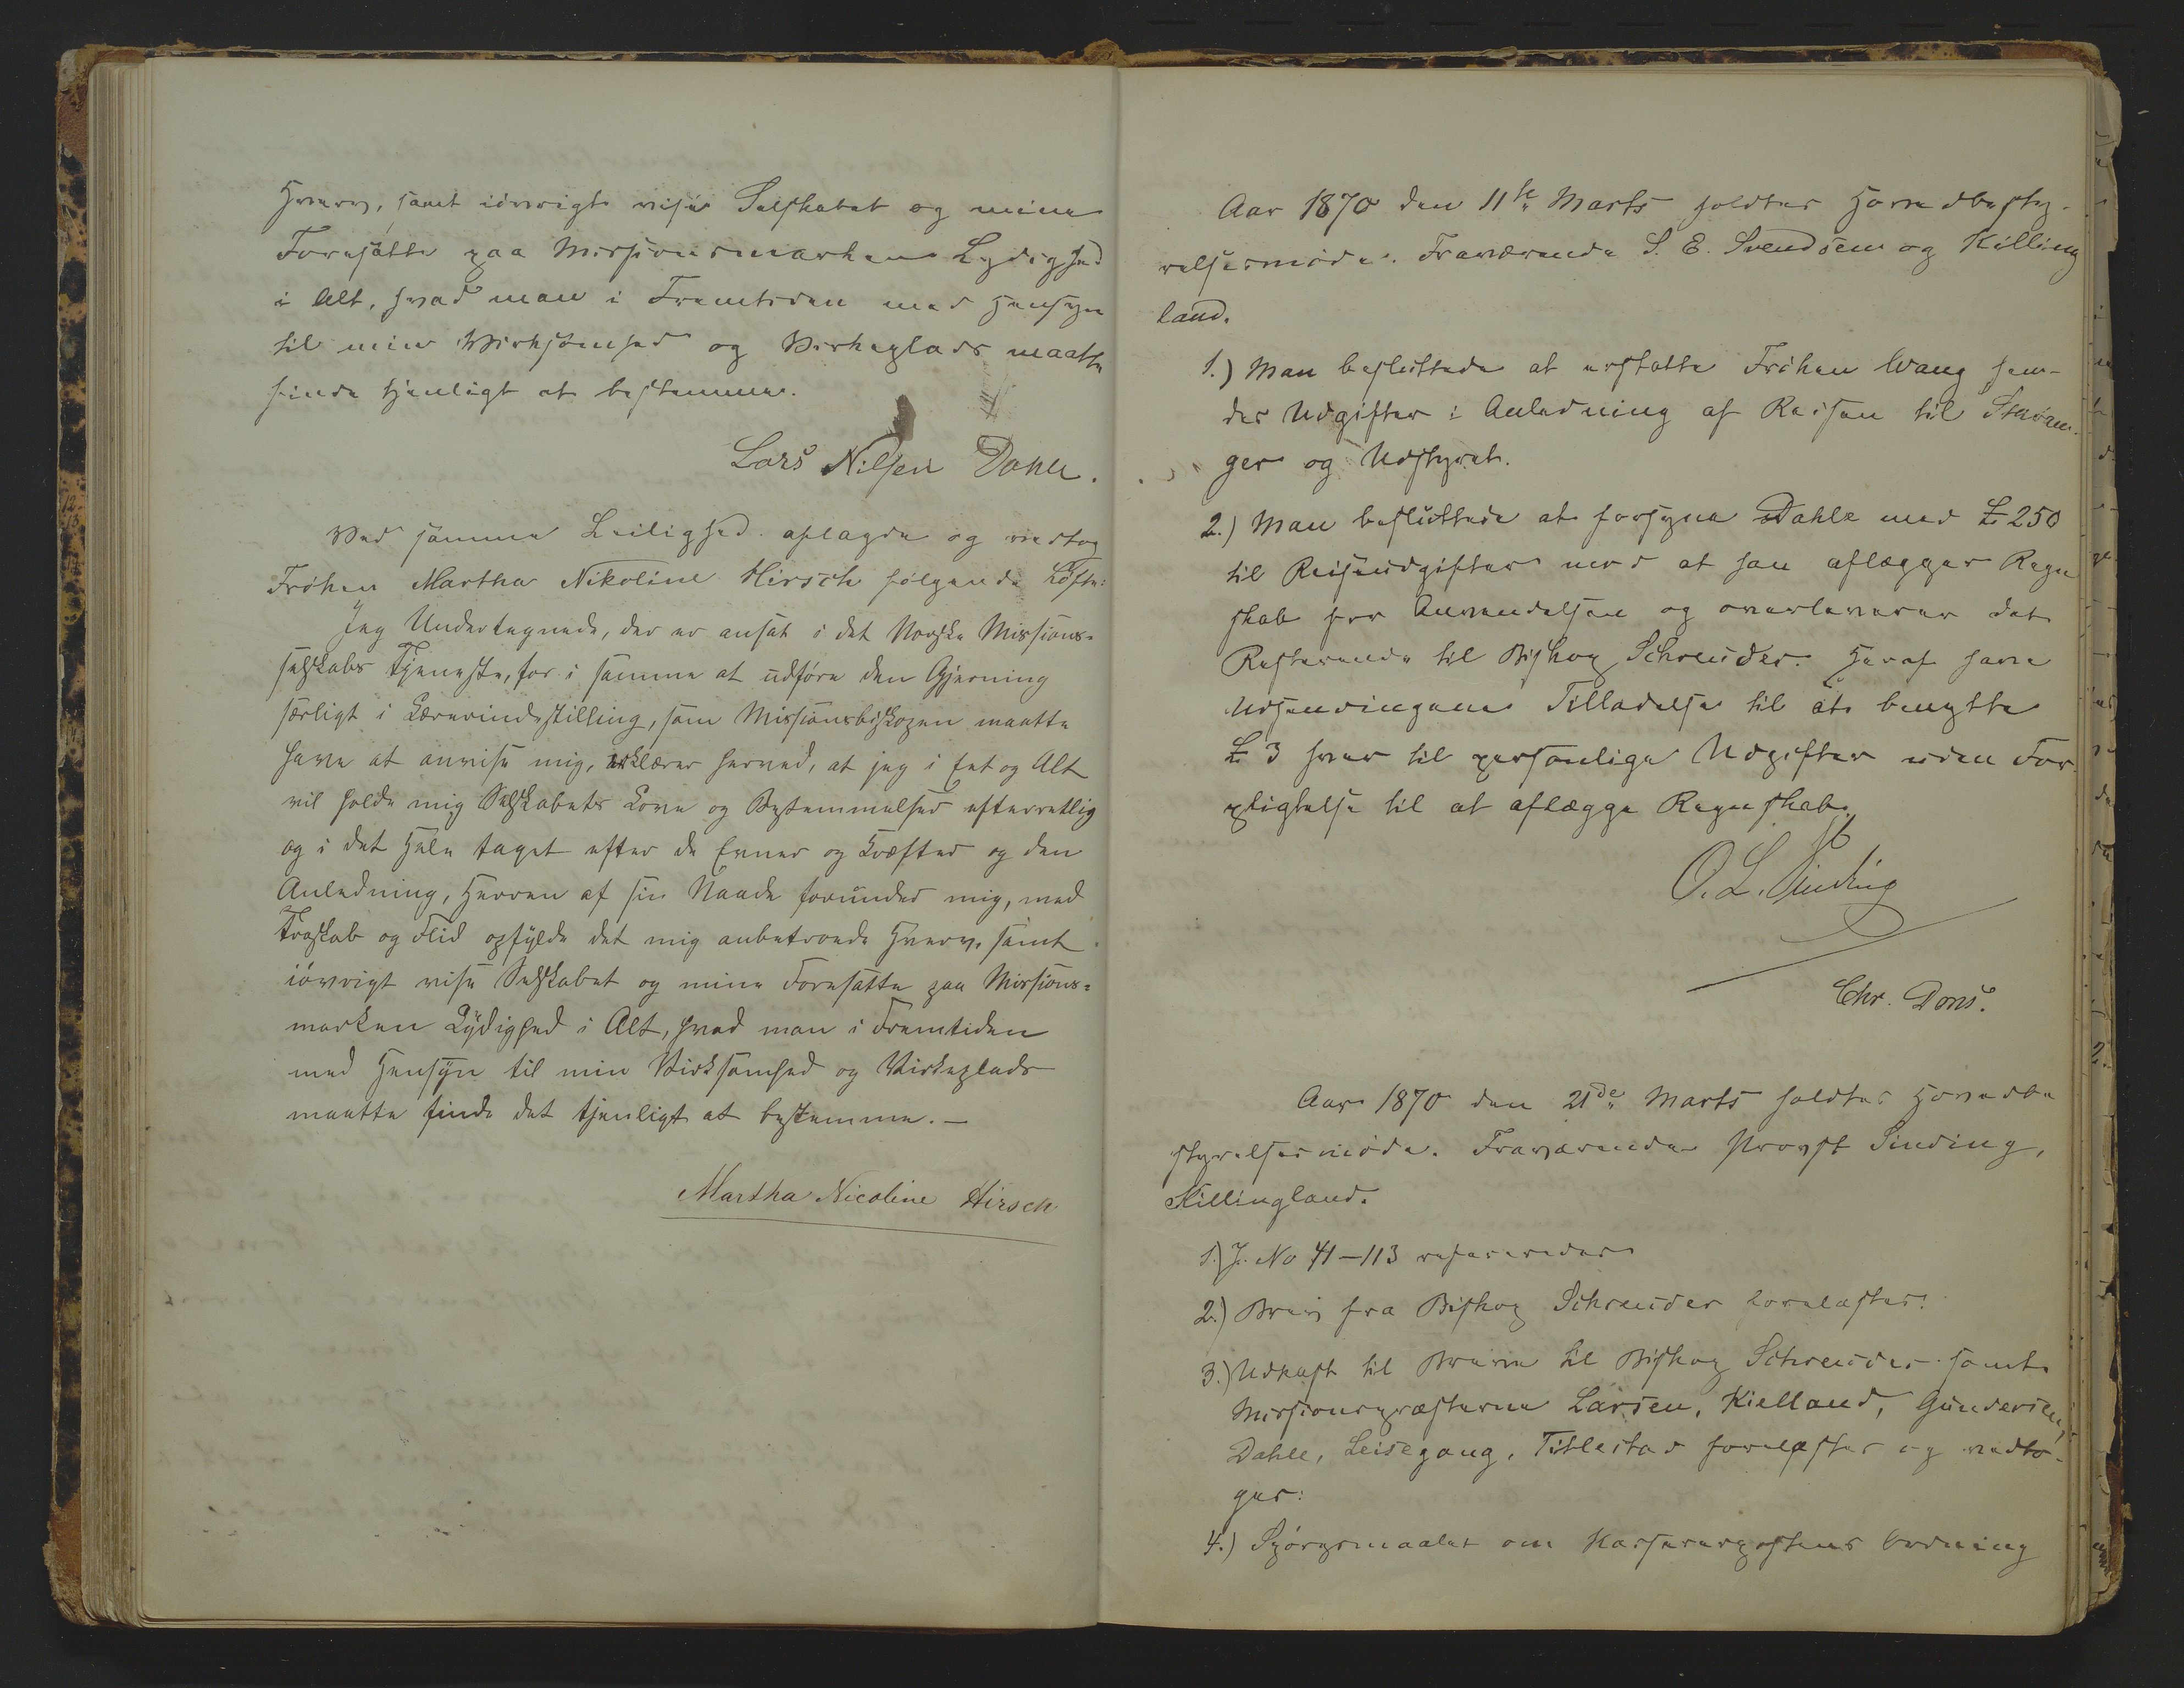 Hverv, samt iövrigt vise Selskabet og mine
Foresatte paa Missionsmarken Lydighed
i Alt, hvad man i Fremtiden med Hensyn
til min Virksomhed og Virkeplads maatte
finde tjenligt at bestemme.
Lars Nilsen Dahle.
Ved samme Leilighed aflagde og vedtog
Fröken Martha Nikoline Hirsch fölgende Löfte:
Jeg Undertegnede, der er ansat i det Norske Missions-
selskabs Tjeneste, for i samme at udföre den Gjerning
særligt i Lærerindestilling, som Missionsbiskopen maatte
have at anvise mig, erklærer herved, at jeg i Eet og Alt
vil holde mig Selskabets Love og Bestemmelser efterretlig
og i det Hele taget efter de Evner og Kræfter og den
Anledning, Herren af sin Naade forunder mig, med
Troskab og Flid opfylde det mig anbetroede Hverv, samt
iövrigt vise Selskabet og mine Foresatte paa Missions-
marken Lydighed i Alt, hvad man i Fremtiden
med Hensyn til min Virksomhed og Virkeplads
maatte finde det tjenligt at bestemme. —
Martha Nicoline Hirsch
Aar 1870 den 11te Marts holdtes Hovedbesty-
relsesmöde. Fraværende S. E. Svendsen og Killing
land.
1.) Man besluttede at erstatte Fröken Wang hen-
des Udgifter i Anledning af Reisen til Stavan-
ger og Udstyret.
2.) Man besluttede at forsyne Dahle med £ 250
til Reiseudgifter mod at han aflægger Regn
skab for Anvendelsen og overleverer det
Resterende til Biskop Schreuder. Heraf have
Udsendingene Tilladelse til at benytte
£ 3 hver til personlige Udgifter uden For
pligtelse til at aflægge Regnskab.
O. L. Sinding
Chr. Dons.
Aar 1870 den 21de Marts holdtes Hovedbe
styrelsesmöde. Fraværende Provst Sinding,
Killingland.
1.) J. No 41—113 refereredes
2.) Brev fra Biskop Schreuder forelæstes.
3.) Udkast til Breve til Biskop Schreuder samt
Missionspræsterne Larsen, Kielland, Gundersen,
Dahle, Leisegang, Titlestad forelæstes og vedto-
ges:
4.) Spörgsmaalet om Kassererpostens Ordning